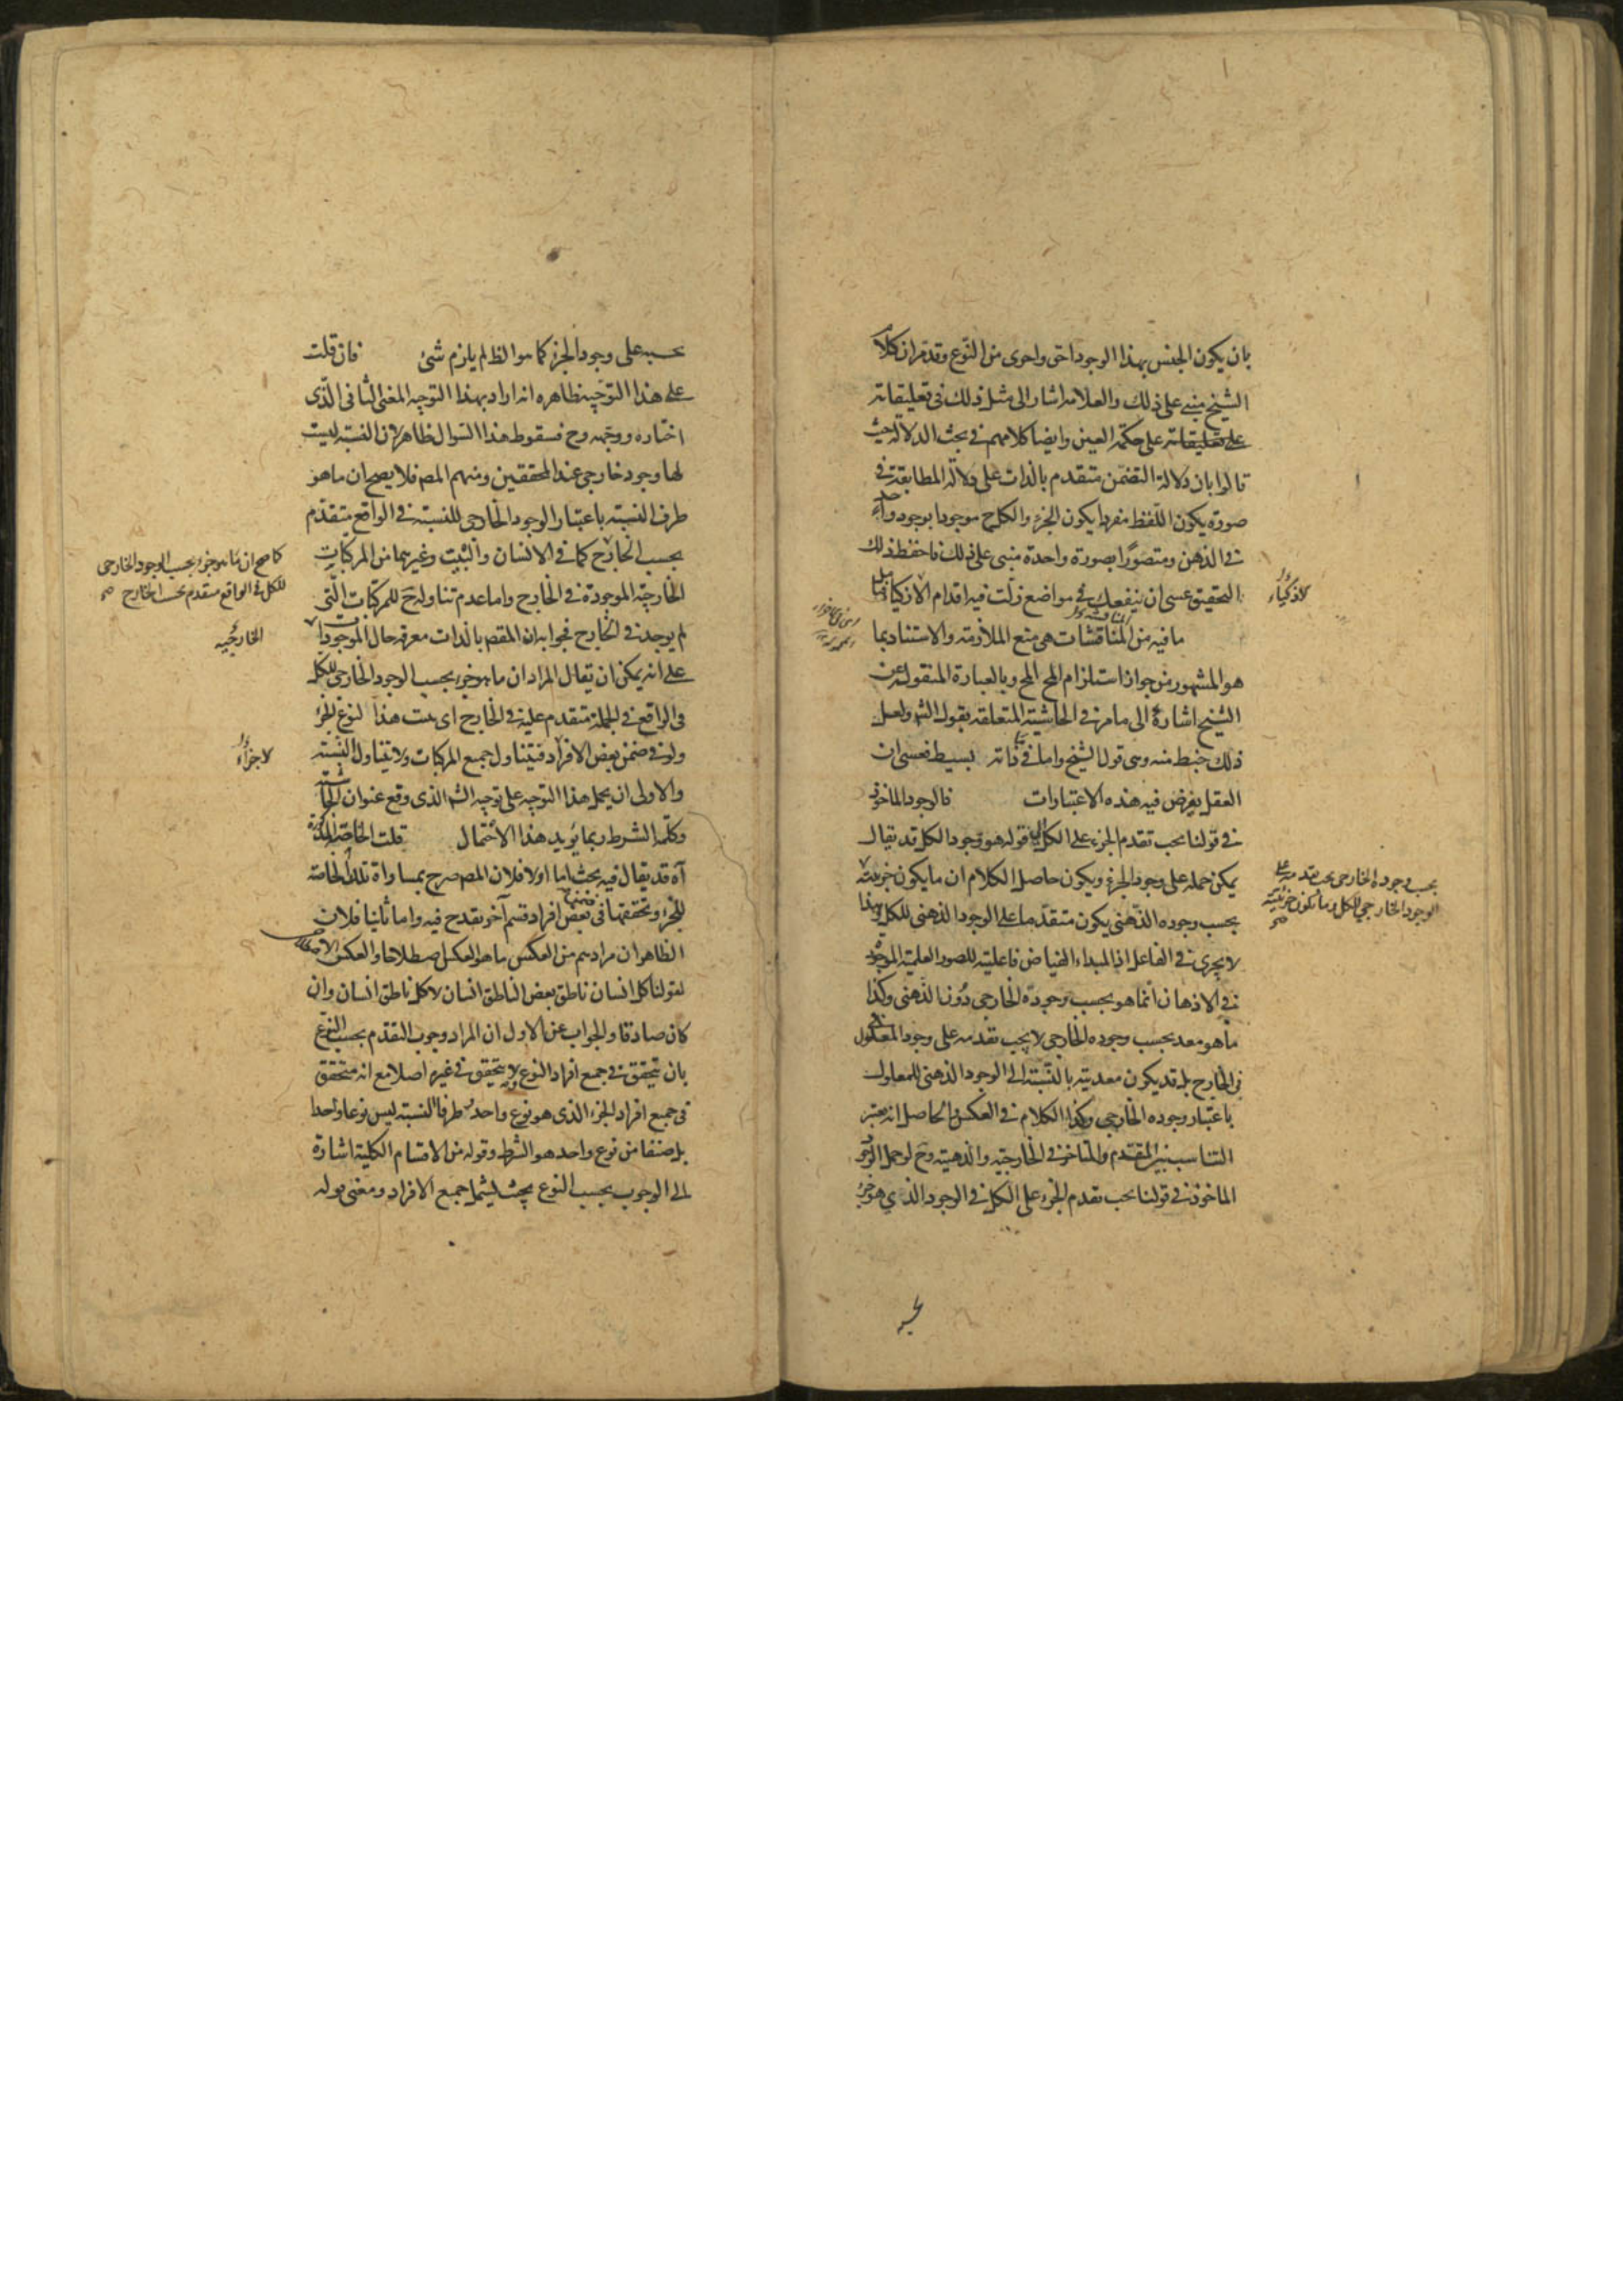 بان يكون الجنس بهذا الوجود احق واحرى من النوع وقد مر ان كلام
الشيخ مبنى على ذلك والعلامه اشار الى مثل ذلك فى تعليقاته
على تعليقاته على حكمة العين وايضا كلامهم فى بحث الدلالة حيث
قالوا بان دلالة التضمن متقدم بالذات على دلالة المطابقة فى
صورة يكون اللفظ مفردا يكون الجزء والكل ح موجودا بوجود واحد
فى الذهن ومتصورا بصورة واحدة مبنى على ذلك فاحفظ ذلك
التحقيق عسى ان ينفعك فى مواضع زلت فيه اقدام الازكياء
لاذكياء
ما فيه من المناقشات هى منع الملازمة والاستناد بما
هو المشهور من جواز استلزام المح المح وبالعبارة المنقولة عن
الشيخ اشارة الى ما مر فى الحاشية المتعلقة بقول الشم ولعل
ذلك خبط منه وهى قول الشيخ واما فى ذاته بسيط فعسى ان
العقل يفرض فيه هذه الاعتبارات فالوجود الماخوذ
فى قولنا يجب تقدم الجزء على الكل قوله هو وجود الكل قد يقال
يمكن حمله على وجود الجزء ويكون حاصل الكلام ان ما يكون جزئيته
بحسب وجوده الخارجى يجب تقدمه على
الوجود الخارجى للكل وما يكون جزئيته
صح
بحسب وجوده الذهنى يكون متقدما على الوجود الذهنى للكل وهذا
لا يجرى فى الفاعل اذ المبداء الفياض فاعليته للصور العلمية الموجودة
فى الاذهان انما هو بحسب وجوده الخارجى دون الذهنى وكذا
ما هو معد بحسب وجوده الخارجى لا يجب تقدمه على وجود المعلول
فى الخارج بل قد يكون معديته بالنسبة الى الوجود الذهنى للمعلول
باعتبار وجوده الخارجى وكذا الكلام فى العكس والحاصل انه يعتبر
التناسب بين المتقدم والمتاخر فى الخارجية والذهنية وح لو حمل الوجود
الماخوذ فى قولنا يجب تقدم الجزء على الكل فى الوجود الذي هو جزء
بحسبه
بحسبه على وجود الجزء كما هو الظ لم يلزم شئ فان قلت
على هذا التوجيه ظاهره انه اراد بهذا التوجيه المعنى الثانى الذى
اختاره ووجهه وح فسقوط هذا السوال ظاهر لان النسبة ليست
لها وجود خارجى عند المحققين ومنهم المص فلا يصح ان ما هو
طرف النسبة باعتبار الوجود الخارجى للنسبة فى الواقع يتقدم
بحسب الخارج كما فى الانسان والبيت وغيرهما من المركبات
كما صح ان ما هو جزء بحسب الوجود الخارجى
للكل فى الواقع متقدم بحسب الخارج صح
الخارجية الموجودة فى الخارج واما عدم تناوله ح للمركبات التى
لم يوجد فى الخارج فجوابه ان المقصم بالذات معرفة حال الموجودات
الخارجيه
على انه يمكن ان يقال المراد ان ما هو جزء بحسب الوجود الخارجى للكل
فى الواقع فى الجملة متقدم عليه فى الخارج اى هذا لنوع الجزء
ولو فى ضمن بعض الافراد فيتناول جميع المركبات ولا يتناول النسبة
لاجزاء
والاولى ان يحمل هذا التوجيه على توجيه الشم الذى وقع عنوان الحاشية
وكلمة الشرط ربما يؤيد هذا الاحتمال قلت الخاصة المذكورة
آه قد يقال فيه بحث اما اولا فلان المص صرح بمساواة تلك الخاصة
للجزء وتحققها فى بعض افراد قسم آخر يقدح فيه واما ثانيا فلان
الظاهر ان مرادهم من العكس ما هو العكس اصطلاحا والعكس الاصطلاحى
لقولنا كل انسان ناطق بعض الناطق انسان لا كل ناطق انسان وان
كان صادقا والجواب عن الاول ان المراد وجوب التقدم بحسب النوع
بان يتحقق فى جميع افراد النوع ولا يتحقق فى غيره اصلا مع انه متحقق
فى جميع افراد الجزء الذى هو نوع واحد وطرفا النسبة ليس نوعا واحدا
بل صنفا من نوع واحد هو الشرط وقوله من الاقسام الكلية اشارة
الى الوجوب بحسب النوع بحيث يشمل جميع الافراد ومعنى قوله